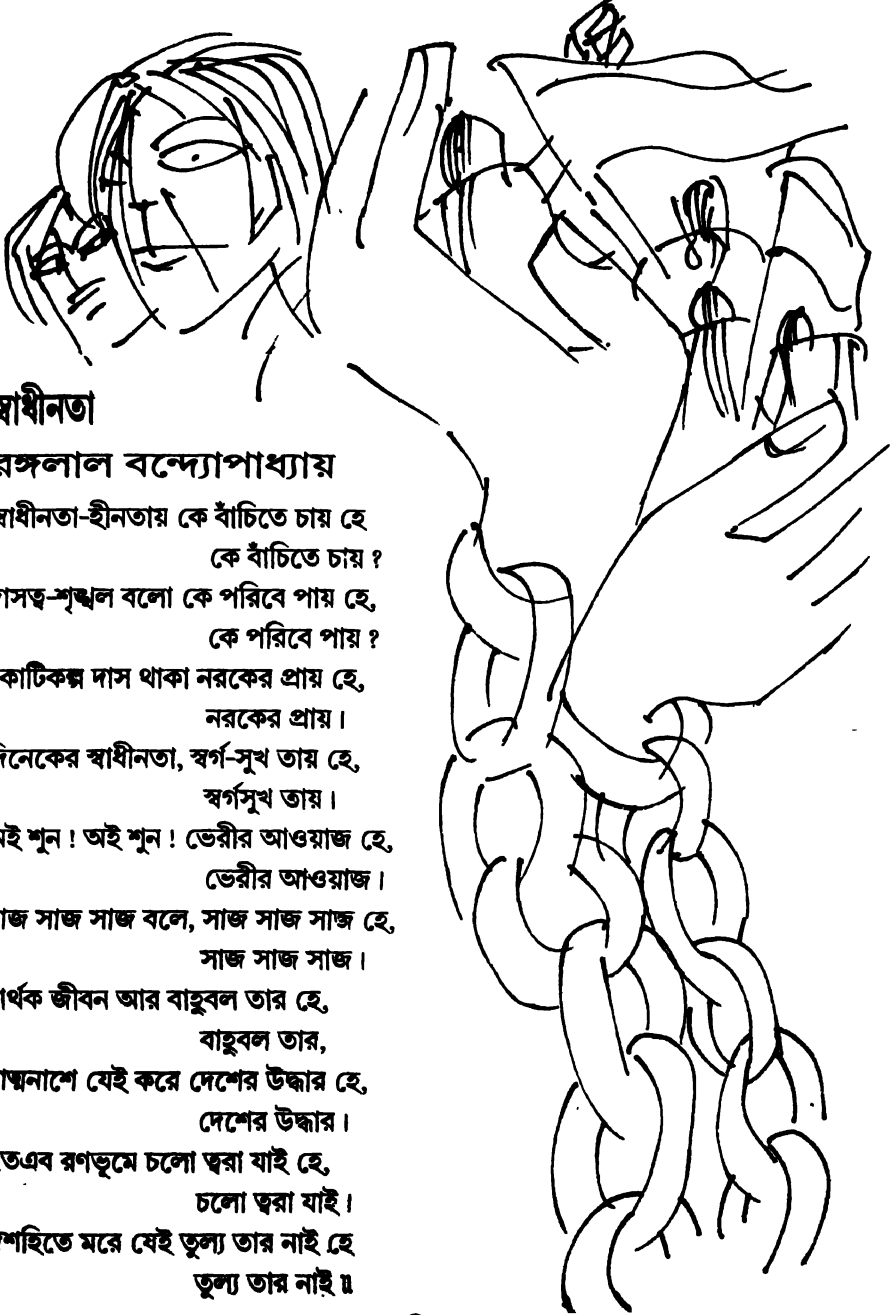 স্বাধীনতা
রঙ্গলাল বন্দ্যোপাধ্যায়
স্বাধীনতা-হীনতায় কে বাঁচিতে চায় হে
কে বাঁচিতে চায় ?
দাসত্ব-শৃঙ্খল বলো কে পরিবে পায় হে,
কে পরিবে পায় ?
কোটিকল্প দাস থাকা নরকের প্রায় হে,
নরকের প্রায় ।
দিনেকের স্বাধীনতা, স্বর্গ-সুখ তায় হে,
স্বর্গসুখ তায় ।
অই শুন ! অই শুন ! ভেরীর আওয়াজ হে,
ভেরীর আওয়াজ ।
সাজ সাজ সাজ বলে, সাজ সাজ সাজ হে,
সাজ সাজ সাজ ।
সার্থক জীবন আর বাহুবল তার হে,
বাহুবল তার,
আত্মনাশে যেই করে দেশের উদ্ধার হে,
দেশের উদ্ধার ।
অতএব রণভূমে চলো ত্বরা যাই হে,
চলো ত্বরা যাই ।
দেশহিতে মরে যেই তুল্য তার নাই হে
তুল্য তার নাই ॥